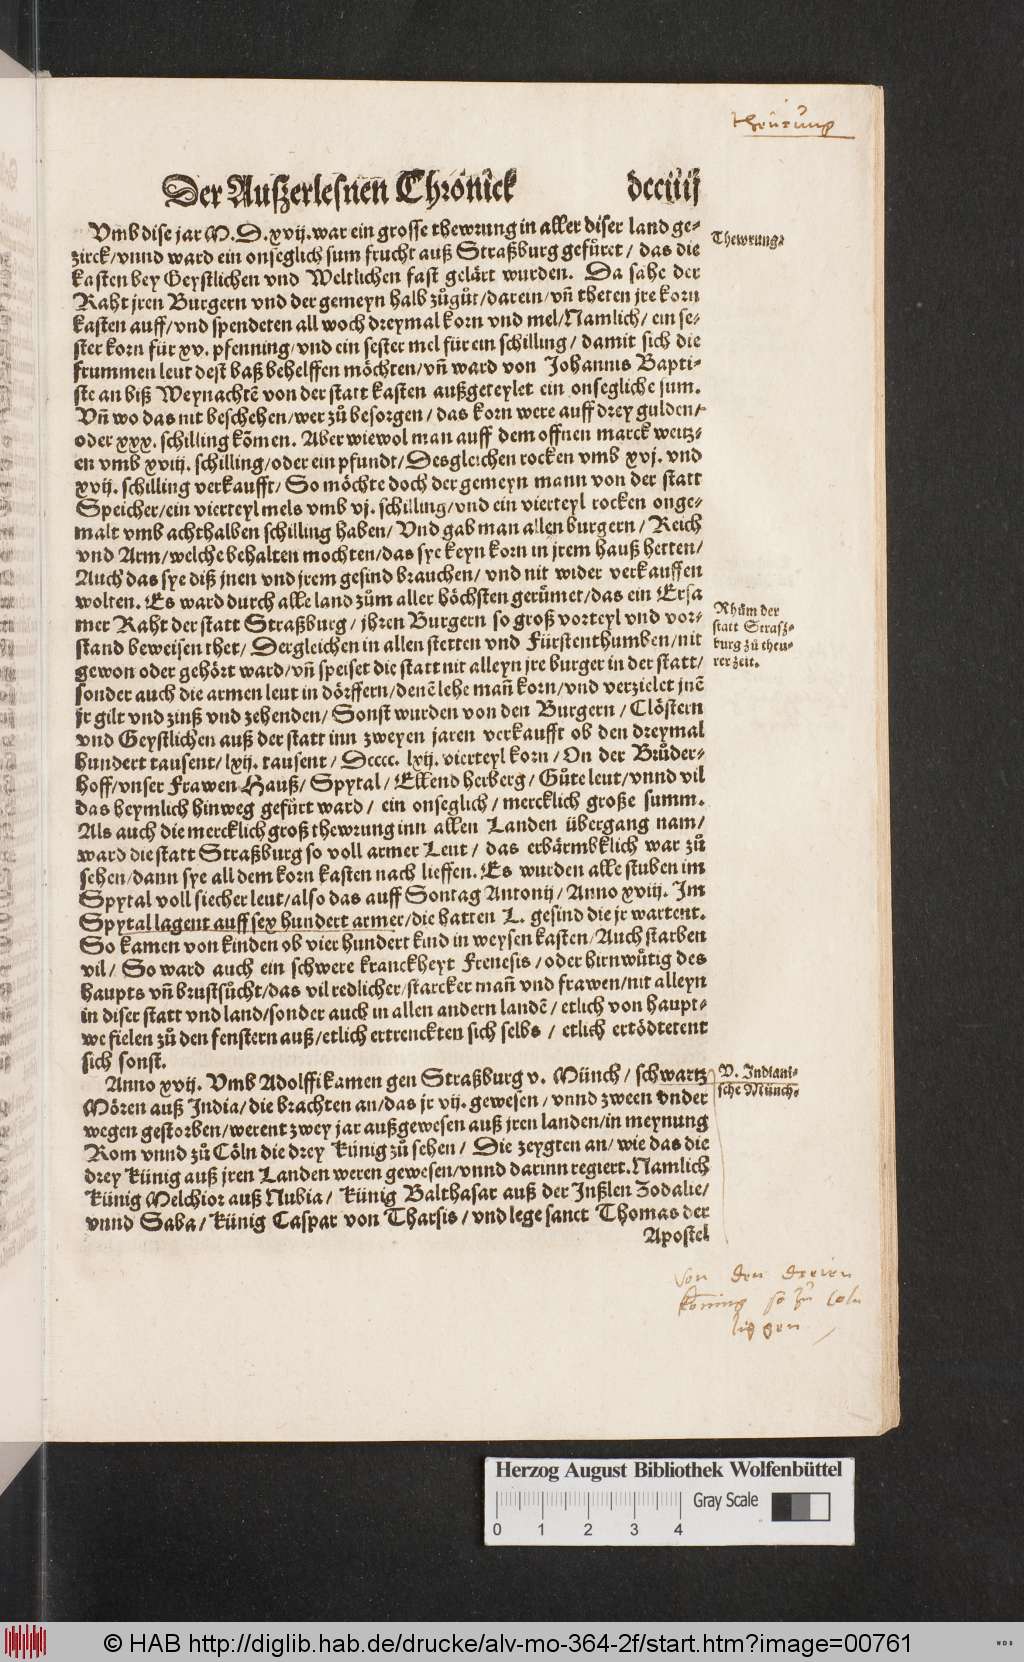 theurung
Der Außerlesnen Chronick dcciiij
Vmb dise jar M.D.xvij. war ein grosse thewrung in aller diser land ge-
Thewrung.
zirck/vnnd ward ein onseglich sum frucht auß Straßburg gefüret/ das die
kasten bey Geystlichen vnd Weltlichen fast gelärt wurden. Da sahe der
Raht jren Burgern vnd der gemeyn halb zůgůt/darein/vñ theten jre korn
kasten auff/vnd spendeten all woch dreymal korn vnd mel/Namlich/ ein se-
ster korn für xv. pfenning/vnd ein sester mel für ein schilling/ damit sich die
frummen leut dest baß behelffen möchten/vñ ward von Johannis Bapti-
ste an biß Weynachtẽ von der statt kasten außgeteylet ein onsegliche sum.
Vñ wo das nit beschehen/wer zů besorgen/ das korn were auff drey gulden/
oder xxx. schilling kõmen. Aber wiewol man auff dem offnen marck weitz-
en vmb xviij. schilling/oder ein pfundt/Desgleichen rocken vmb xvj. vnd
xvij. schilling verkaufft/ So möchte doch der gemeyn mann von der statt
Speicher/ein vierteyl mels vmb vj. schilling/vnd ein vierteyl rocken onge-
malt vmb achthalben schilling haben/ Vnd gab man allen burgern/ Reich
vnd Arm/welche behalten mochten/das sye keyn korn in jrem hauß hetten/
Auch das sye diß jnen vnd jrem gesind brauchen/ vnd nit wider verkauffen
wolten. Es ward durch alle land zům aller höchsten gerümet/das ein Ersa
mer Raht der statt Straßburg/ jhren Burgern so groß vorteyl vnd vor-
Rhům der
statt Strasz-
burg zů theu-
rer zeit.
stand beweisen thet/ Dergleichen in allen stetten vnd Fürstenthumben/nit
gewon oder gehört ward/vñ speiset die statt nit alleyn jre burger in der statt/
sonder auch die armen leut in dörffern/denẽ lehe mañ korn/vnd verzielet jnẽ
jr gilt vnd zinß vnd zehenden/ Sonst wurden von den Burgern/ Clöstern
vnd Geystlichen auß der statt inn zweyen jaren verkaufft ob den dreymal
hundert tausent/ lxij. tausent/ Dcccc. lxij. vierteyl korn/ On der Brůder-
hoff/vnser Frawen Hauß/ Spytal/ Ellend herberg/ Gůte leut/vnnd vil
das heymlich hinweg gefürt ward/ ein onseglich/ mercklich große summ.
Als auch die mercklich groß thewrung inn allen Landen übergang nam/
ward die statt Straßburg so voll armer Leut/ das erbärmbklich war zů
sehen/dann sye all dem korn kasten nach lieffen. Es wurden alle stuben im
Spytal voll siecher leut/also das auff Sontag Antonij/ Anno xviij. Im
Spytal lagent auff sex hundert armer/die hatten L. gesind die jr wartent.
So kamen von kinden ob vier hundert kind in weysen kasten/Auch starben
vil/ So ward auch ein schwere kranckheyt Frenesis/oder hirnwůtig des
haupts vñ brustsůcht/das vil redlicher/starcker mañ vnd frawen/nit alleyn
in diser statt vnd land/sonder auch in allen andern landẽ/ etlich von haupt-
we fielen zů den fenstern auß/etlich ertrenckten sich selbs/ etlich ertödtetent
sich sonst.
Anno xvij. Vmb Adolffi kamen gen Straßburg v. Münch/ schwartz
V. Indiani-
sche Münch.
Mören auß India/die brachten an/das jr vij. gewesen/ vnnd zween vnder
wegen gestorben/werent zwey jar außgewesen auß jren landen/in meynung
Rom vnnd zů Cöln die drey Künig zů sehen/ Die zeygten an/ wie das die
drey Künig auß jren Landen weren gewesen/vnnd darinn regiert. Namlich
Künig Melchior auß Nubia/ Künig Balthasar auß der Inßlen Zodalie/
vnnd Saba/ Künig Caspar von Tharsis/ vnd lege sanct Thomas der
Apostel
Von den dreien
köning so zu Coln
liggen
Herzog August Bibliothek Wolfenbüttel
Gray Scale
0 1 2 3 4
© HAB http://diglib.hab.de/drucke/alv-mo-364-2f/start.htm?image=00761